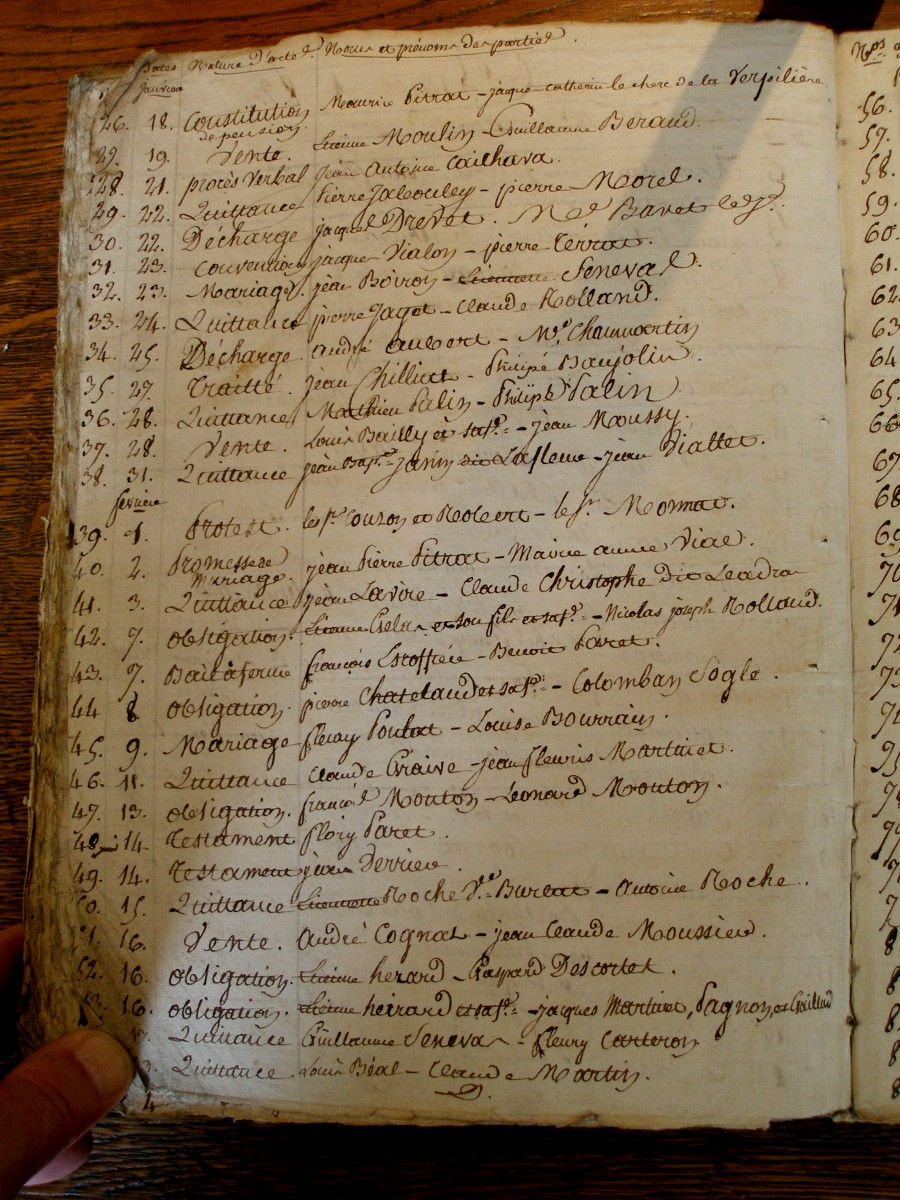 Dates Nature D'actes Noms et prénoms des parties.
Janvier
26. 18. Constitution Maurice Pitrat - jaques catherin le clerc de la Verpilière
de pension.
27. 19. Vente. Etienne Moulin - Guillaume Beraud.
28. 21. procès Verbal Jean Antoine Cailhava.
29. 22. Quittance pierre Jabouley - pierre Morel.
30. 22. Décharge jacques Drevet. Md Bavet
31. 23. Convention jacques Vialon - pierre Terrat.
32. 23. Mariage. jean Boiron - Etiennette Seneval.
33. 24. Quittance pierre Jagot - Claude Rolland.
34. 25. Décharge. andré Aubert - Chaumartin
35. 27. Traitté. jean Chilliat - Philipé Baujolin.
36. 28. Quittance Mathieu Palin - Philipé Palin
37. 28. Vente. Louis Bailly et sa fe. - jean Moussy.
38. 31. Quittance jean Bapt. janin dit Lafleur - jean Viallet.
février
39. 1. Protest. les Srs Couzon et Robert - le Sr. Mornat.
40. 2. Promesse de jean Pierre Pitrat - Marie anne Vial.
Mariage.
41. 3. Quittance jean Lavire - Claude Christophe Dit Leandre
42. 7. obligation. Etienne Crelas et son fils et sa fe. - Nicolas joseph Rolland.
43. 7. Bail à ferme françois Estoffière - Benoit Paret.
44 8 obligation. pierre Chatelaud et sa fe. - Colomban Sogle.
45. 9. Mariage fleury Poulat - Louise Bourrain.
46. 11. Quittance Claude Craive - jean fleuris Martinet.
47. 13. obligation. françois Mouton - Leonard Mouton.
48. 14. Testament flory Paret.
49. 14. Testament jean Verrieu
50. 15. Quittance Etiennette Roche Ve. Bureat - Antoine Roche.
51. 16. Vente. André Cognat - jean Claude Moussieu.
52. 16. obligation. Etienne herard - Gaspard Descortes.
53. 16. obligation. Etienne heirard et sa fe. - jacques Martinet, Pagnon, et
Quittance Guillaume Seneval - fleury Carteron
Quittance Louis Béal - Claude Martin.
56.
57.
58.
59.
60.
61.
62.
63
64
65.
66
67
68
69